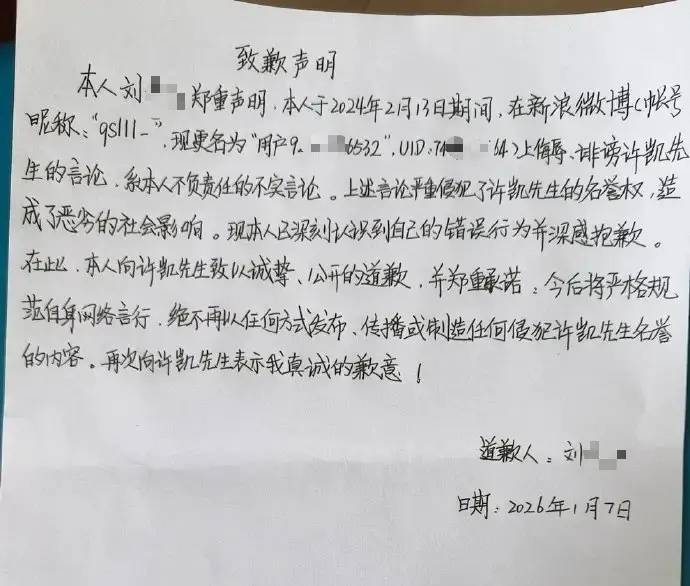 致歉声明
本人刘 郑重声明,本人于2024年2月13日期间,在新浪微博(帐号
昵称:"qslll_",现更名为"用户9 6532",UID:74 64)上侮辱、诽谤许凯先
生的言论,系本人不负责任的不实言论。上述言论严重侵犯了许凯先生的名誉权,造
成了恶劣的社会影响。现本人已深刻认识到自己的错误行为并深感抱歉。
在此,本人向许凯先生致以诚挚、公开的道歉,并郑重承诺:今后将严格规
范自身网络言行,绝不再以任何方式发布、传播或制造任何侵犯许凯先生名誉
的内容。再次向许凯先生表示我真诚的歉意!
道歉人:刘
日期:2026年1月7日